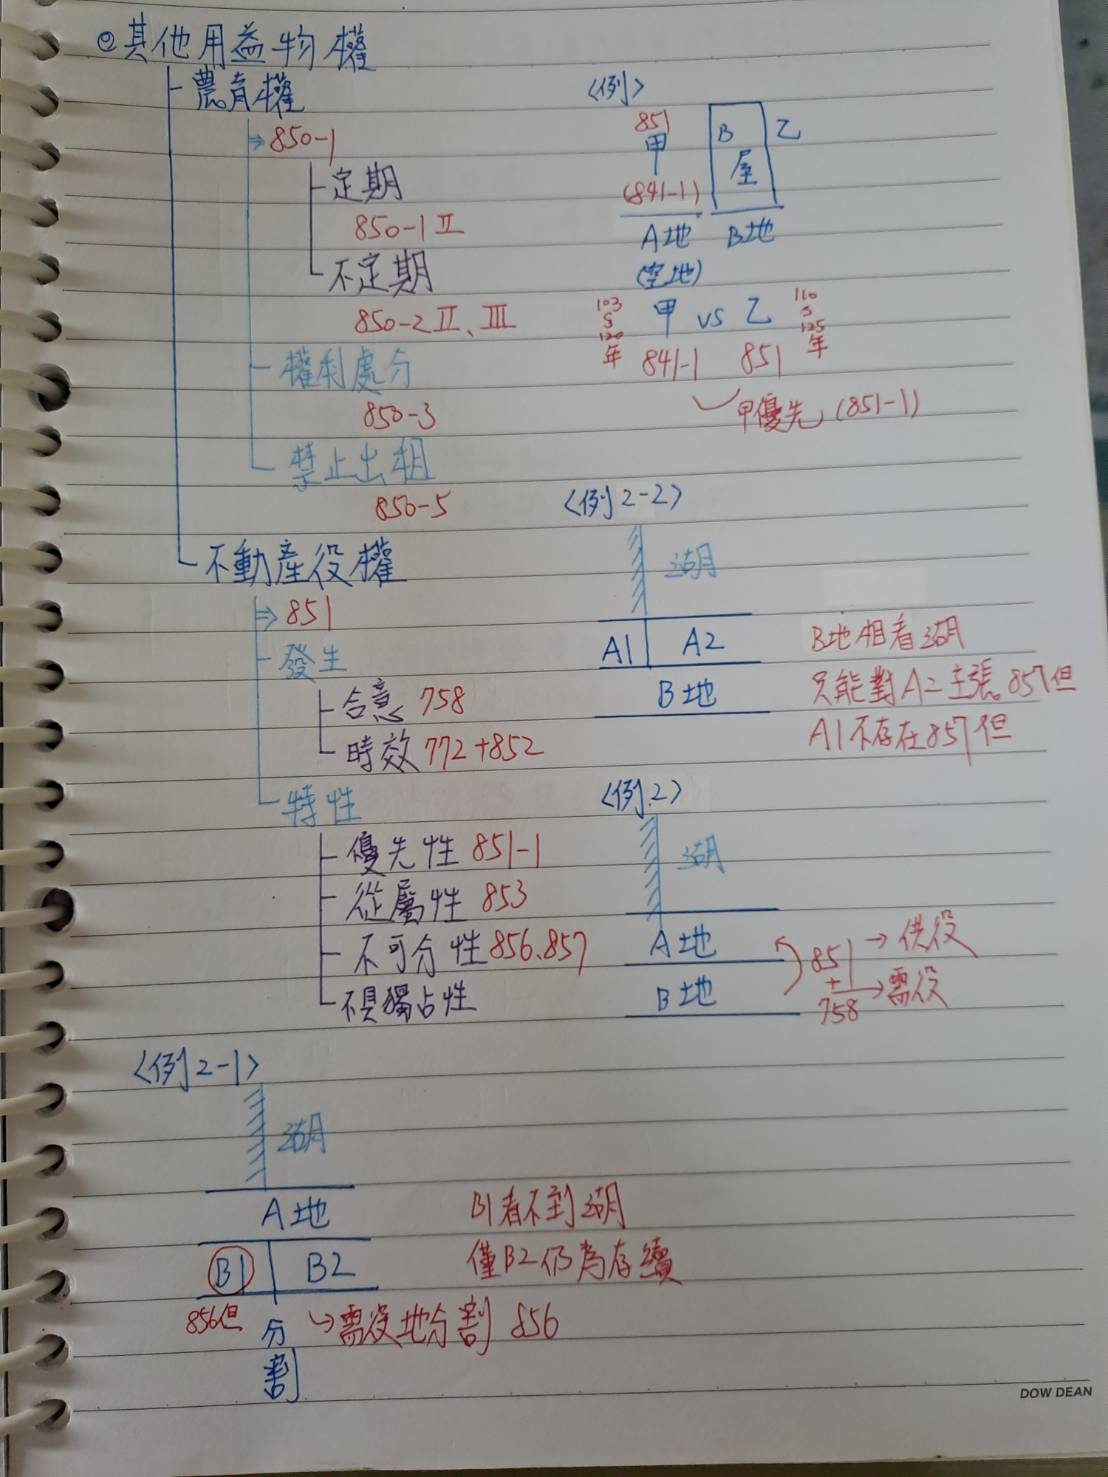 其他用益物權
農育權
850-1
定期
850-1 II
不定期
850-2 II、III
權利處分
850-3
禁止出租
850-5
不動產役權
851
發生
合意 758
時效 772+852
特性
優先性 851-1
從屬性 853
不可分性 856、857
不具獨占性
<例>
851
甲
(841-1)
A地
(空地)
B 乙
屋
B地
103
5
120
年
甲 vs 乙
841-1 851
110
5
125
年
甲優先 (851-1)
<例2-2>
湖
A1 A2
B地
B地相看湖
只能對A2主張857但
A1不存在857但
<例2>
湖
A地
B地
851→供役
+
758→需役
<例2-1>
湖
A地
B1 B2
856但
分
割
→需役地分割 856
B1看不到湖
僅B2仍為存續
DOW DEAN